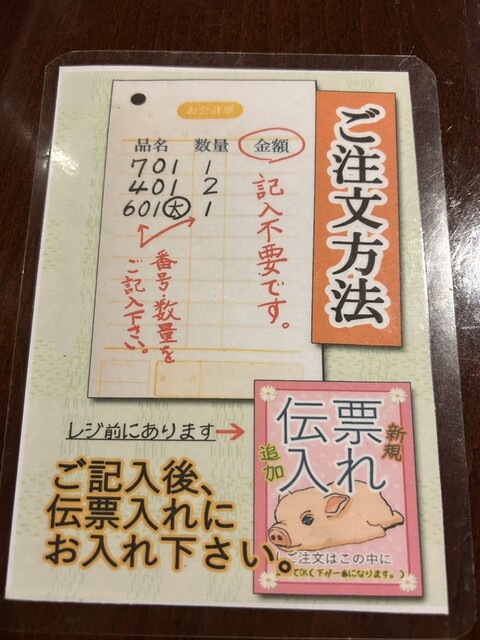 ご注文方法
お会計票
品名 数量 金額
701 1
401 2
601大 1
記入不要です。
番号、数量を
ご記入下さい。
レジ前にあります→
ご記入後、
伝票入れに
お入れ下さい。
伝票
入れ
新規
追加
ご注文はこの中に